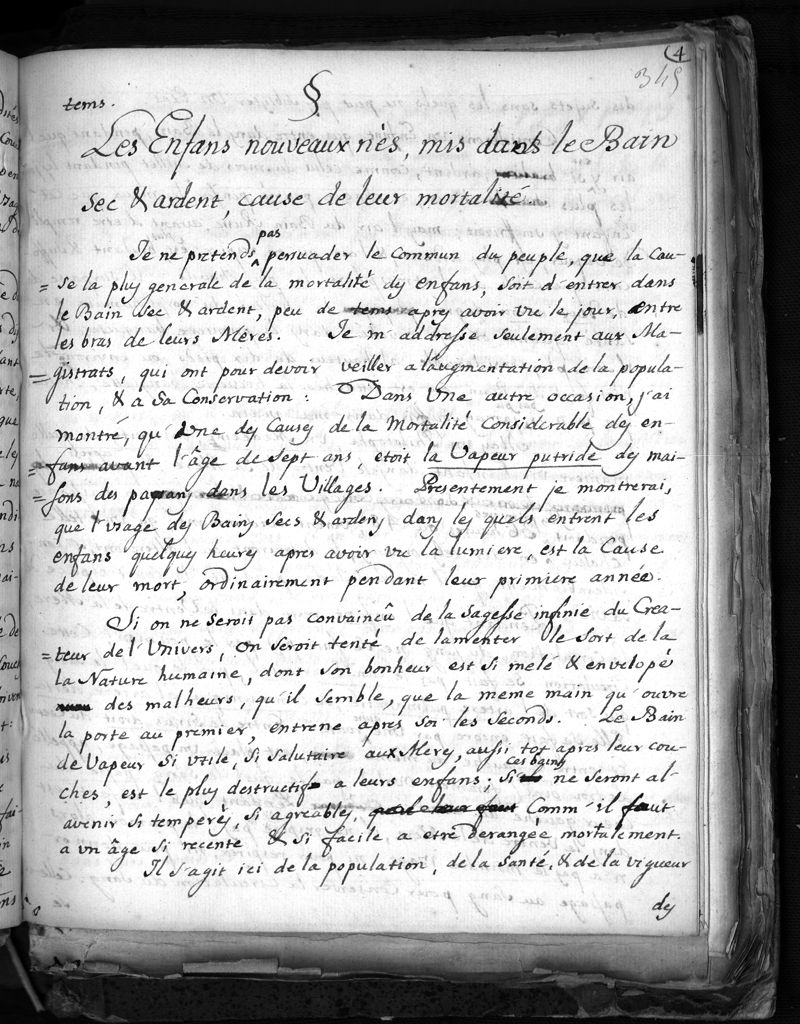 4
345
tems.
§
Les Enfans nouveaux nés, mis dans le Bain
sec & ardent, cause de leur mortalité.
pas
Je ne pretends persuader le commun du peuple, que la Cau-
= se la plus generale de la mortalité des enfans, soit d'entrer dans
le Bain sec & ardent, peu de tems apres avoir vu le jour, entre
les bras de leurs Mères. Je m'addresse seulement aux Ma-
= gistrats, qui ont pour devoir veiller a l'augmentation de la popula-
tion, & a Sa Conservation: Dans Une autre occasion, j'ai
montré, qu'Une des Causes de la Mortalité Considerable des en-
= fans avant l'âge de Sept ans, étoit la Vapeur putride des mai-
= sons des paysans dans les Villages. Presentement je montrerai,
que l'usage des Bains Secs & ardens dans les quels entrent les
enfans quelques heures apres avoir vu la lumiere, est la Cause
de leur mort, ordinairement pendant leur primiere année.
Si on ne seroit pas convaincû de la Sagesse infinie du Crea-
= teur de l'Univers, on seroit tenté de lamenter le sort de la
la Nature humaine, dont son bonheur est si melé & envelopé
des malheurs, qu'il semble, que la meme main qu'ouvre
la porte au premier, entrene apres soi les Seconds. Le Bain
de Vapeur Si utile, Si Salutaire aux Meres, aussi tot apres leur cou-
ces bains
ches, est le plus destructif a leurs enfans; Si ne seront al-
avenir si temperés, si agreables, Comm'il faut
a un âge si recente & si facile a etre derangée mortalement.
Il s'agit ici de la population, de la Santé, & de la vigueur
des